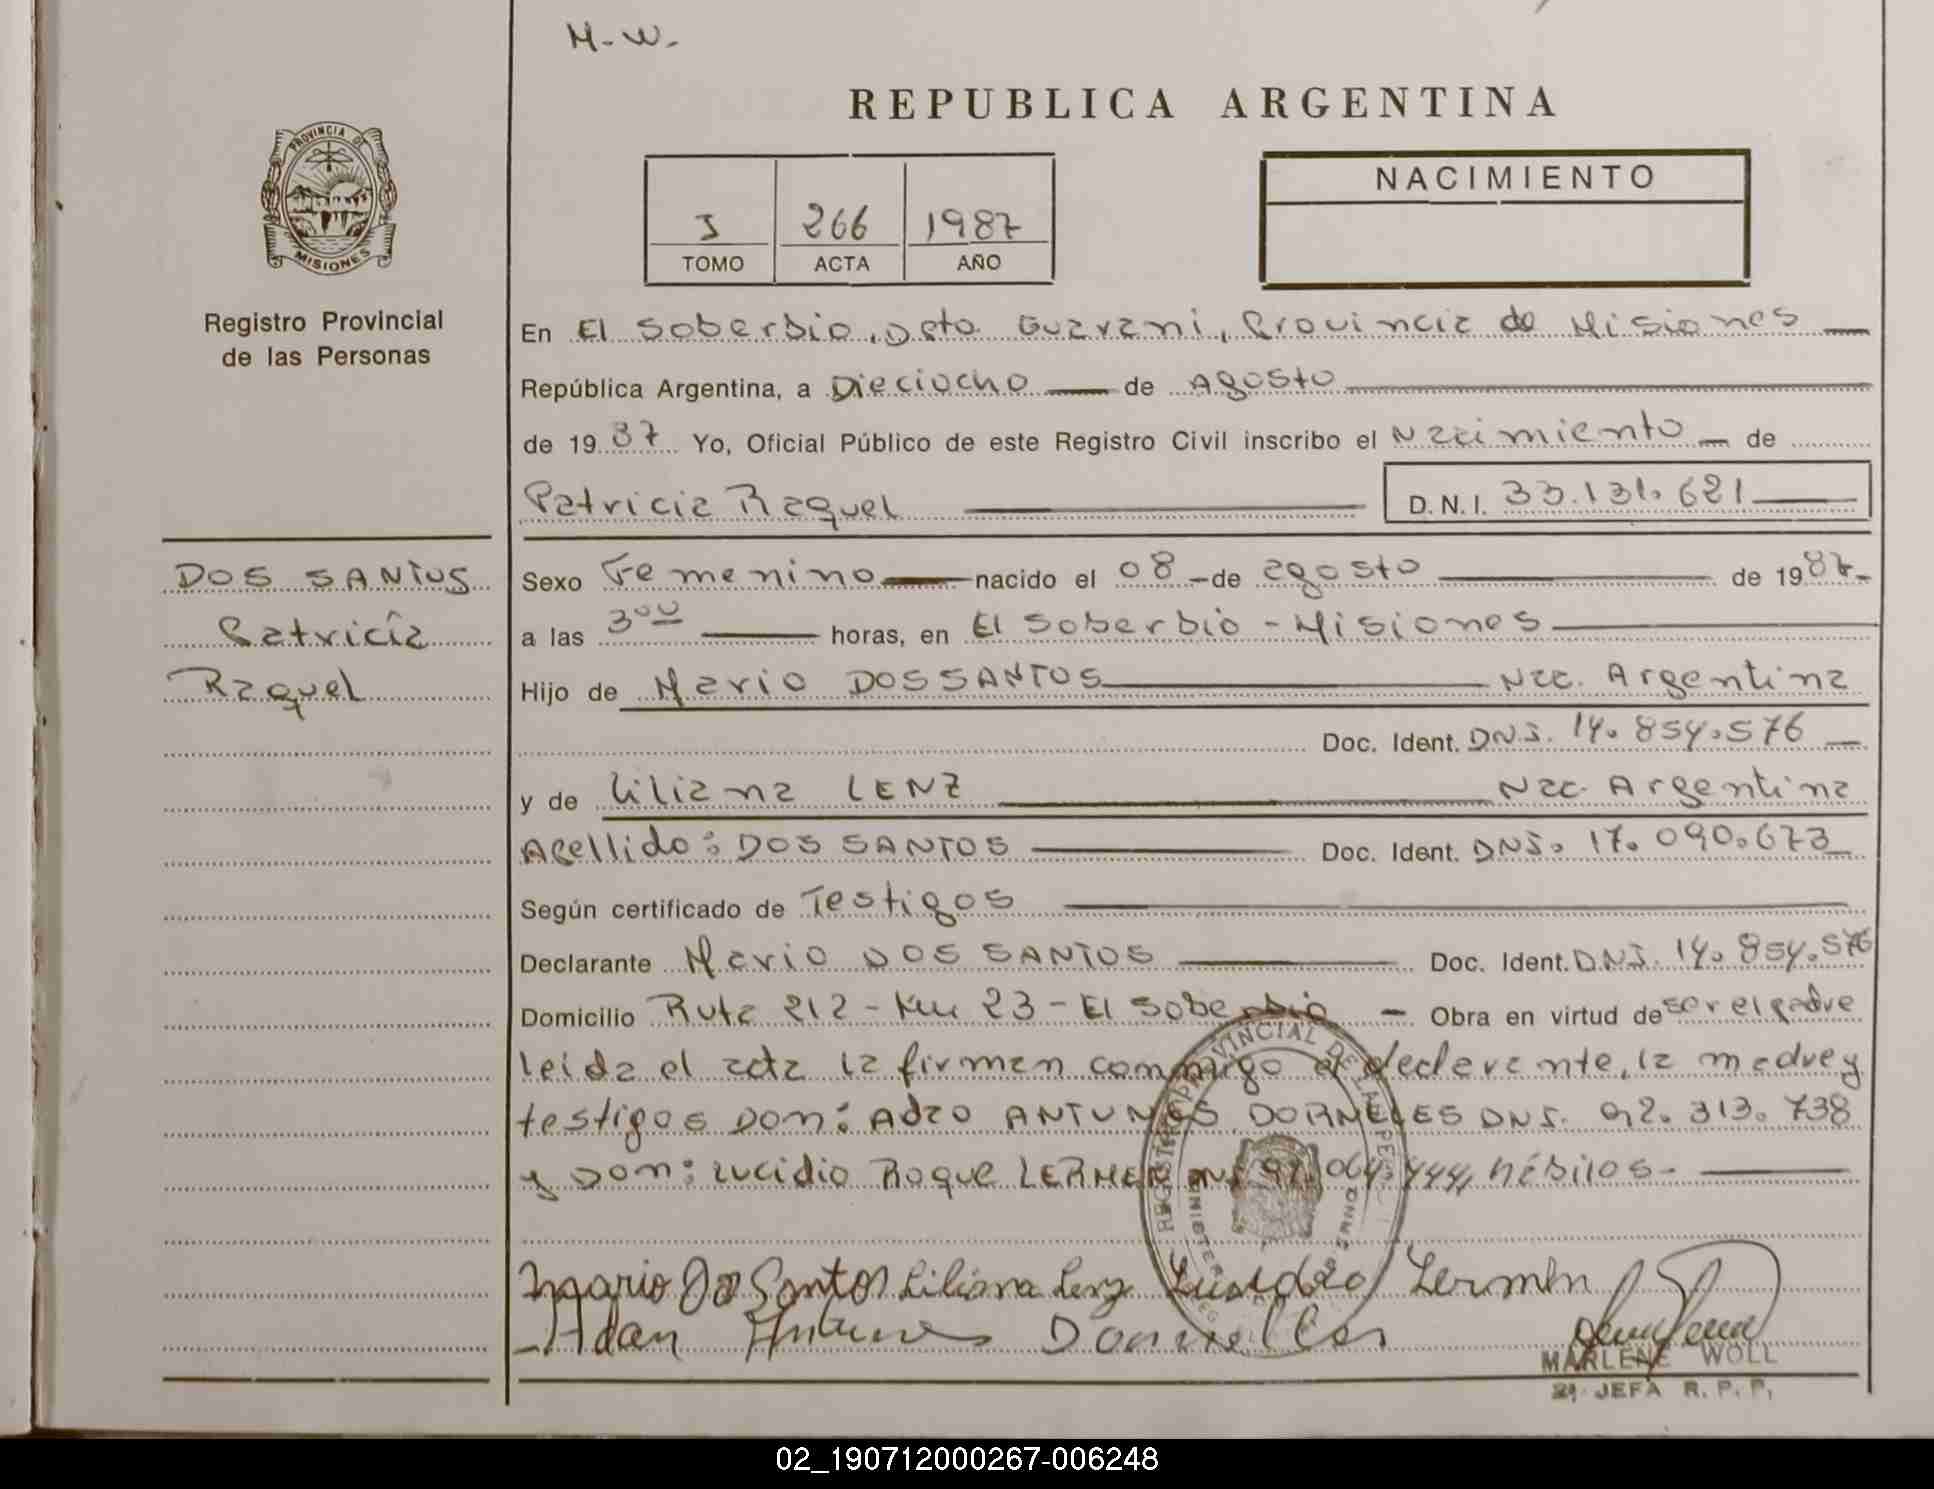 M-W-
REPUBLICA ARGENTINA
PROVINCIA DE
MISIONES
Registro Provincial
de las Personas
I 266 1987
TOMO ACTA AÑO
NACIMIENTO
En El Soberbio, Dpto Guarani, Provincia de Misiones
República Argentina, a Dieciocho de Agosto
de 1987 Yo, Oficial Público de este Registro Civil inscribo el Nacimiento de
Patricia Raquel D.N.I. 33.131.621
DOS SANTOS
Patricia
Raquel
Sexo Femenino nacido el 08 de agosto de 1987
a las 3°° horas, en El Soberbio - Misiones
Hijo de Mario DOS SANTOS Nac. Argentina
Doc. Ident. DNI. 14.854.576
y de Liliana LENZ Nac. Argentina
Apellido: DOS SANTOS Doc. Ident. DNI. 17.090.673
Según certificado de Testigos
Declarante Mario DOS SANTOS Doc. Ident. DNI. 14.854.576
Domicilio Ruta 212 - Km 23 - El Soberbio - Obra en virtud de ser el padre
leida el acta la firman conmigo el declarante, la madre y
testigos Don: Adao ANTUNES DORNELES DNI. 92.313.738
y Don: Lucidio Roque LERMEN DNI 92.064.444, hábiles-
REGISTRO PROVINCIAL DE LAS PERSONAS
Mario Dos Santos Liliana Lenz Lermen
Adan Antunes Dornelles
MARLENE WOLL
JEFA R.P.P.
02_190712000267-006248